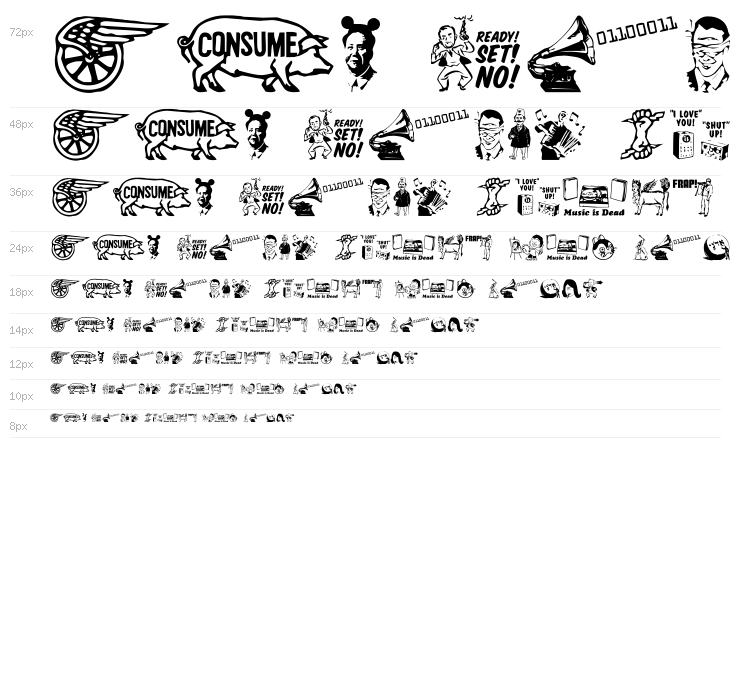 72px CONSUME READY! SET! NO! 01100011
48px CONSUME READY! SET! NO! 01100011 "I LOVE" YOU! "SHUT" UP!
36px CONSUME READY! SET! NO! 01100011 "I LOVE" YOU! "SHUT" UP! Music is Dead FRAP!
24px CONSUME READY! SET! NO! 01100011 "I LOVE" YOU! "SHUT" UP! Music is Dead FRAP! 01100011
18px CONSUME Music is Dead
14px CONSUME
12px
10px
8px